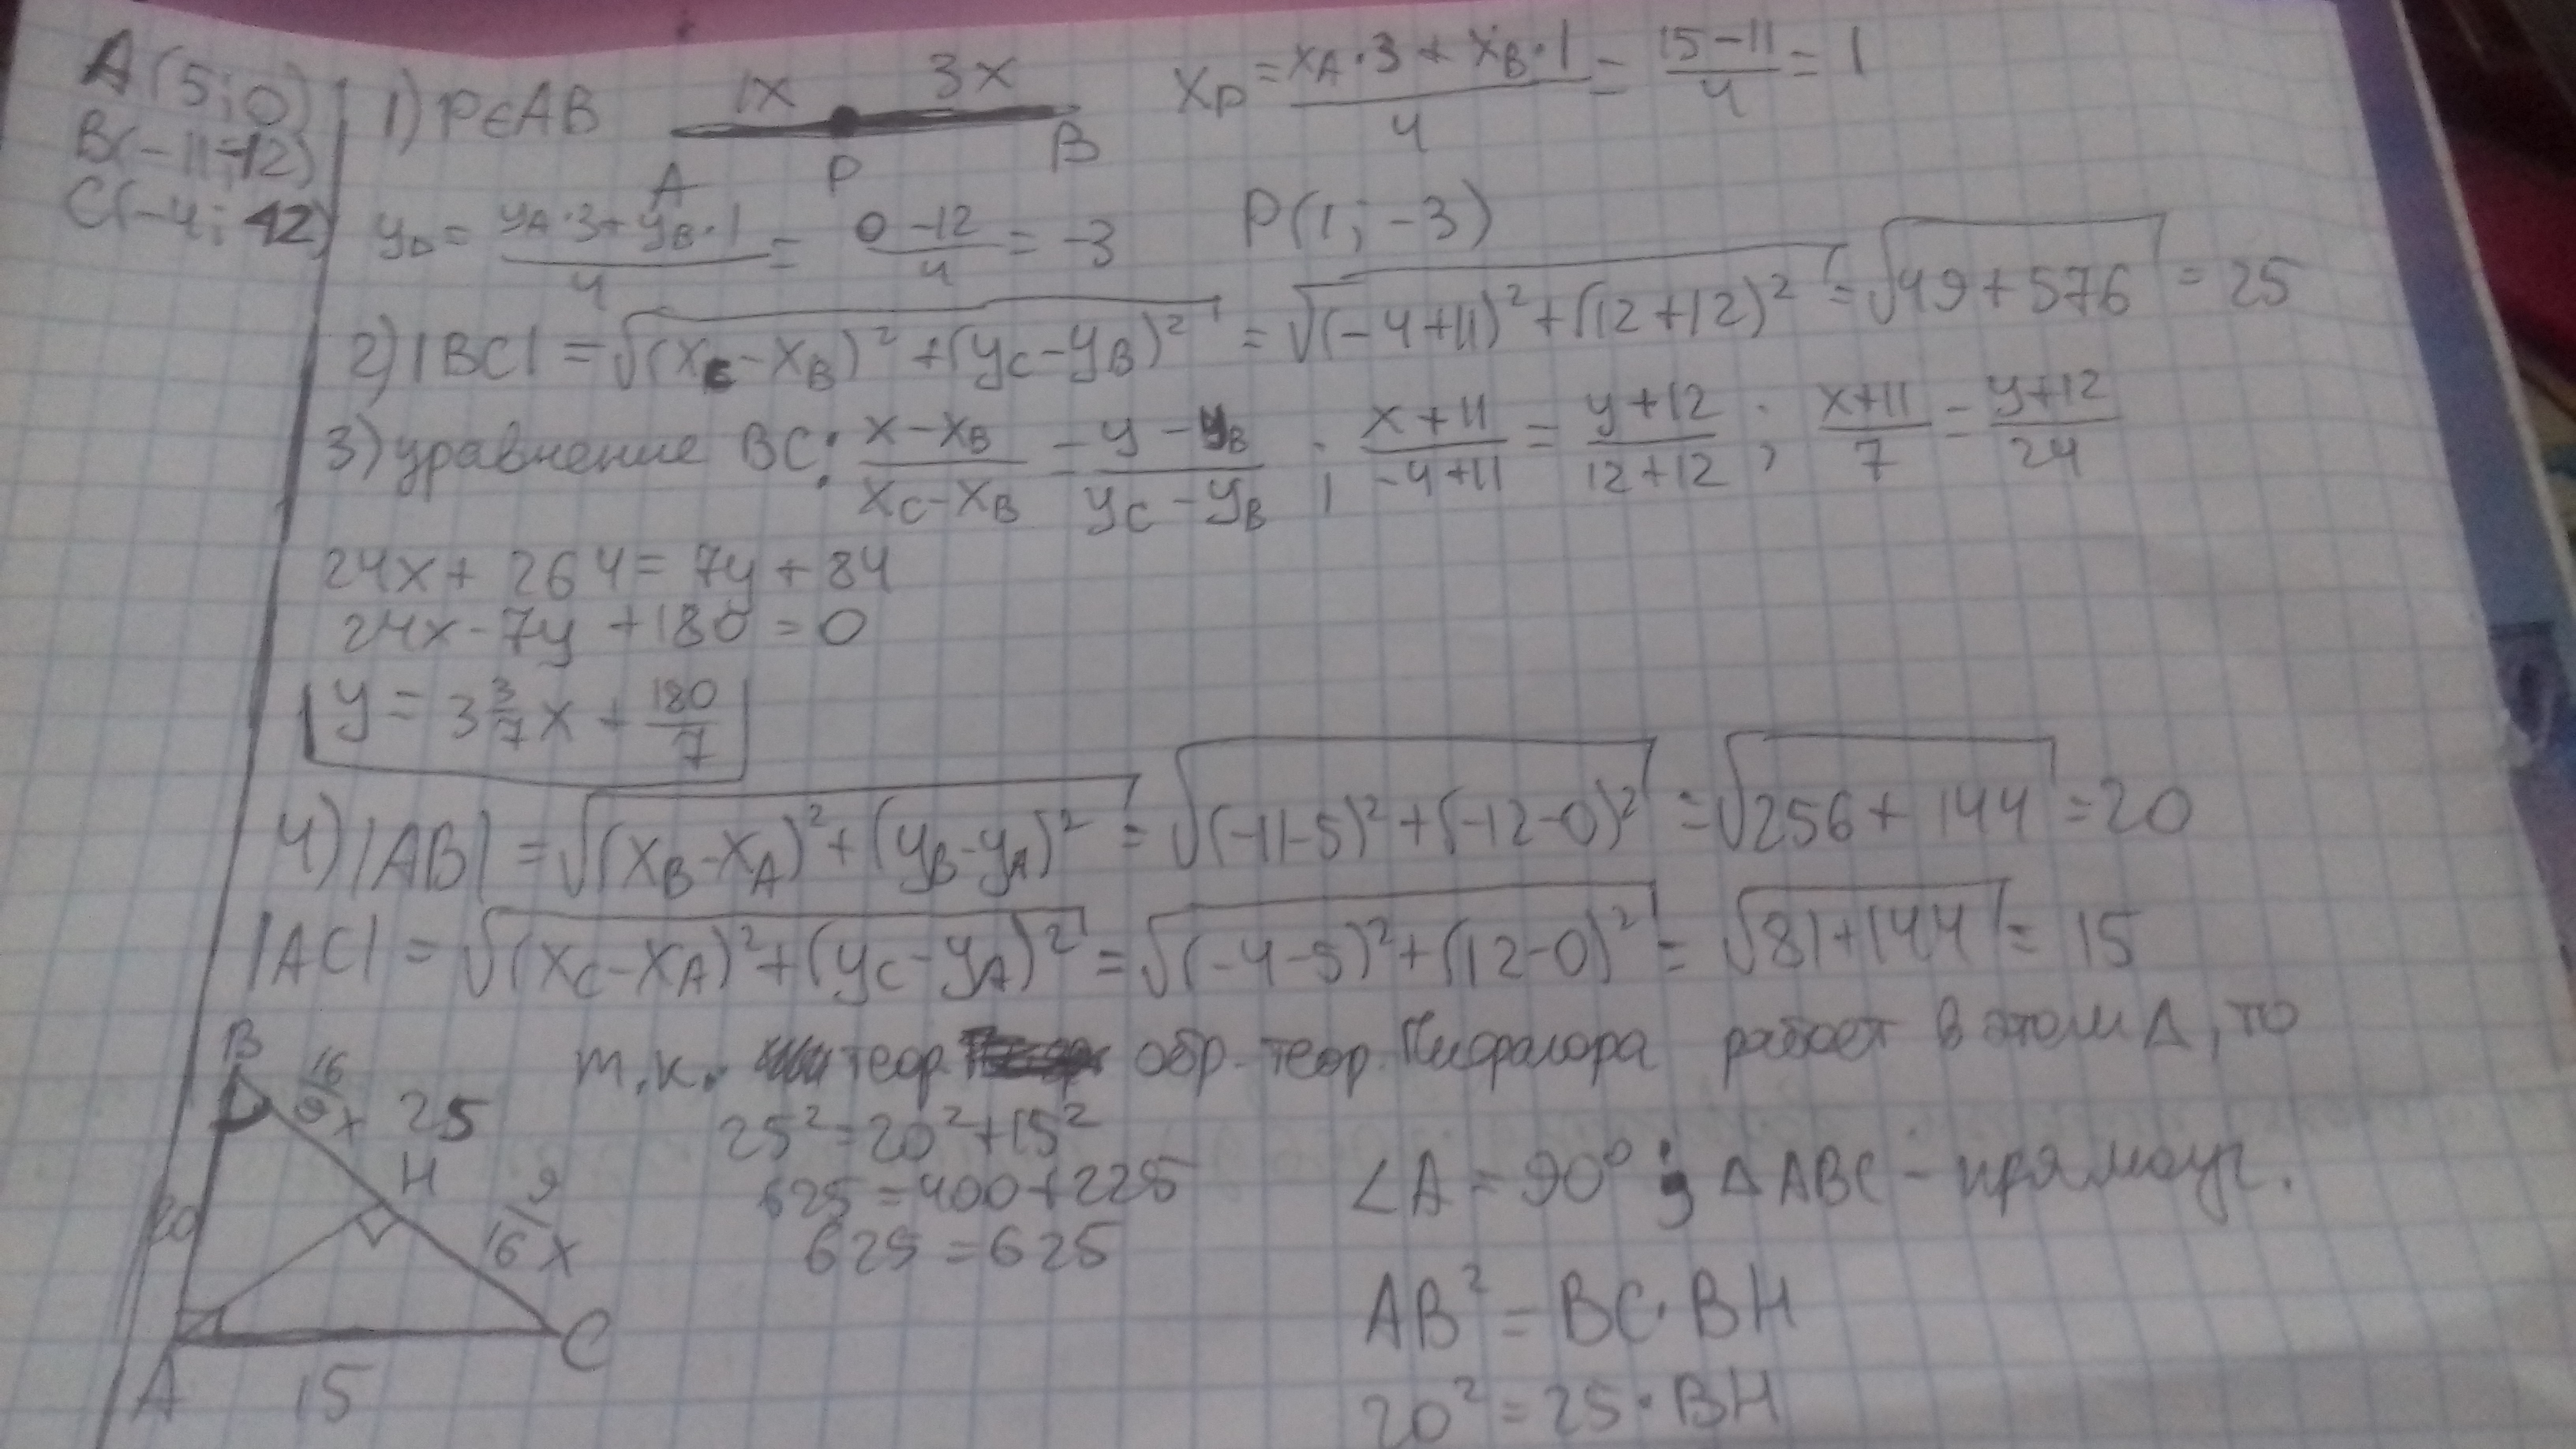 A(5;0)
B(-11;-12)
C(-4;12)
1) P∈AB
1x 3x
A P B
x_P = (x_A·3 + x_B·1)/4 = (15-11)/4 = 1
y_P = (y_A·3 + y_B·1)/4 = (0-12)/4 = -3 P(1;-3)
2) |BC| = √((x_C-x_B)² + (y_C-y_B)²) = √((-4+11)² + (12+12)²) = √(49+576) = 25
3) уравнение BC: (x-x_B)/(x_C-x_B) = (y-y_B)/(y_C-y_B) ; (x+11)/(-4+11) = (y+12)/(12+12) ; (x+11)/7 = (y+12)/24
24x + 264 = 7y + 84
24x - 7y + 180 = 0
y = 3 3/7 x + 180/7
4) |AB| = √((x_B-x_A)² + (y_B-y_A)²) = √((-11-5)² + (-12-0)²) = √(256+144) = 20
|AC| = √((x_C-x_A)² + (y_C-y_A)²) = √((-4-5)² + (12-0)²) = √(81+144) = 15
т.к. теор. обр. теор. Пифагора работает в этом Δ, то
25² = 20² + 15²
625 = 400 + 225
625 = 625
∠A = 90° ; Δ ABC - прямоуг.
AB² = BC·BH
20² = 25·BH
B
16/9 x
25
H
9/16 x
20
A
15
C